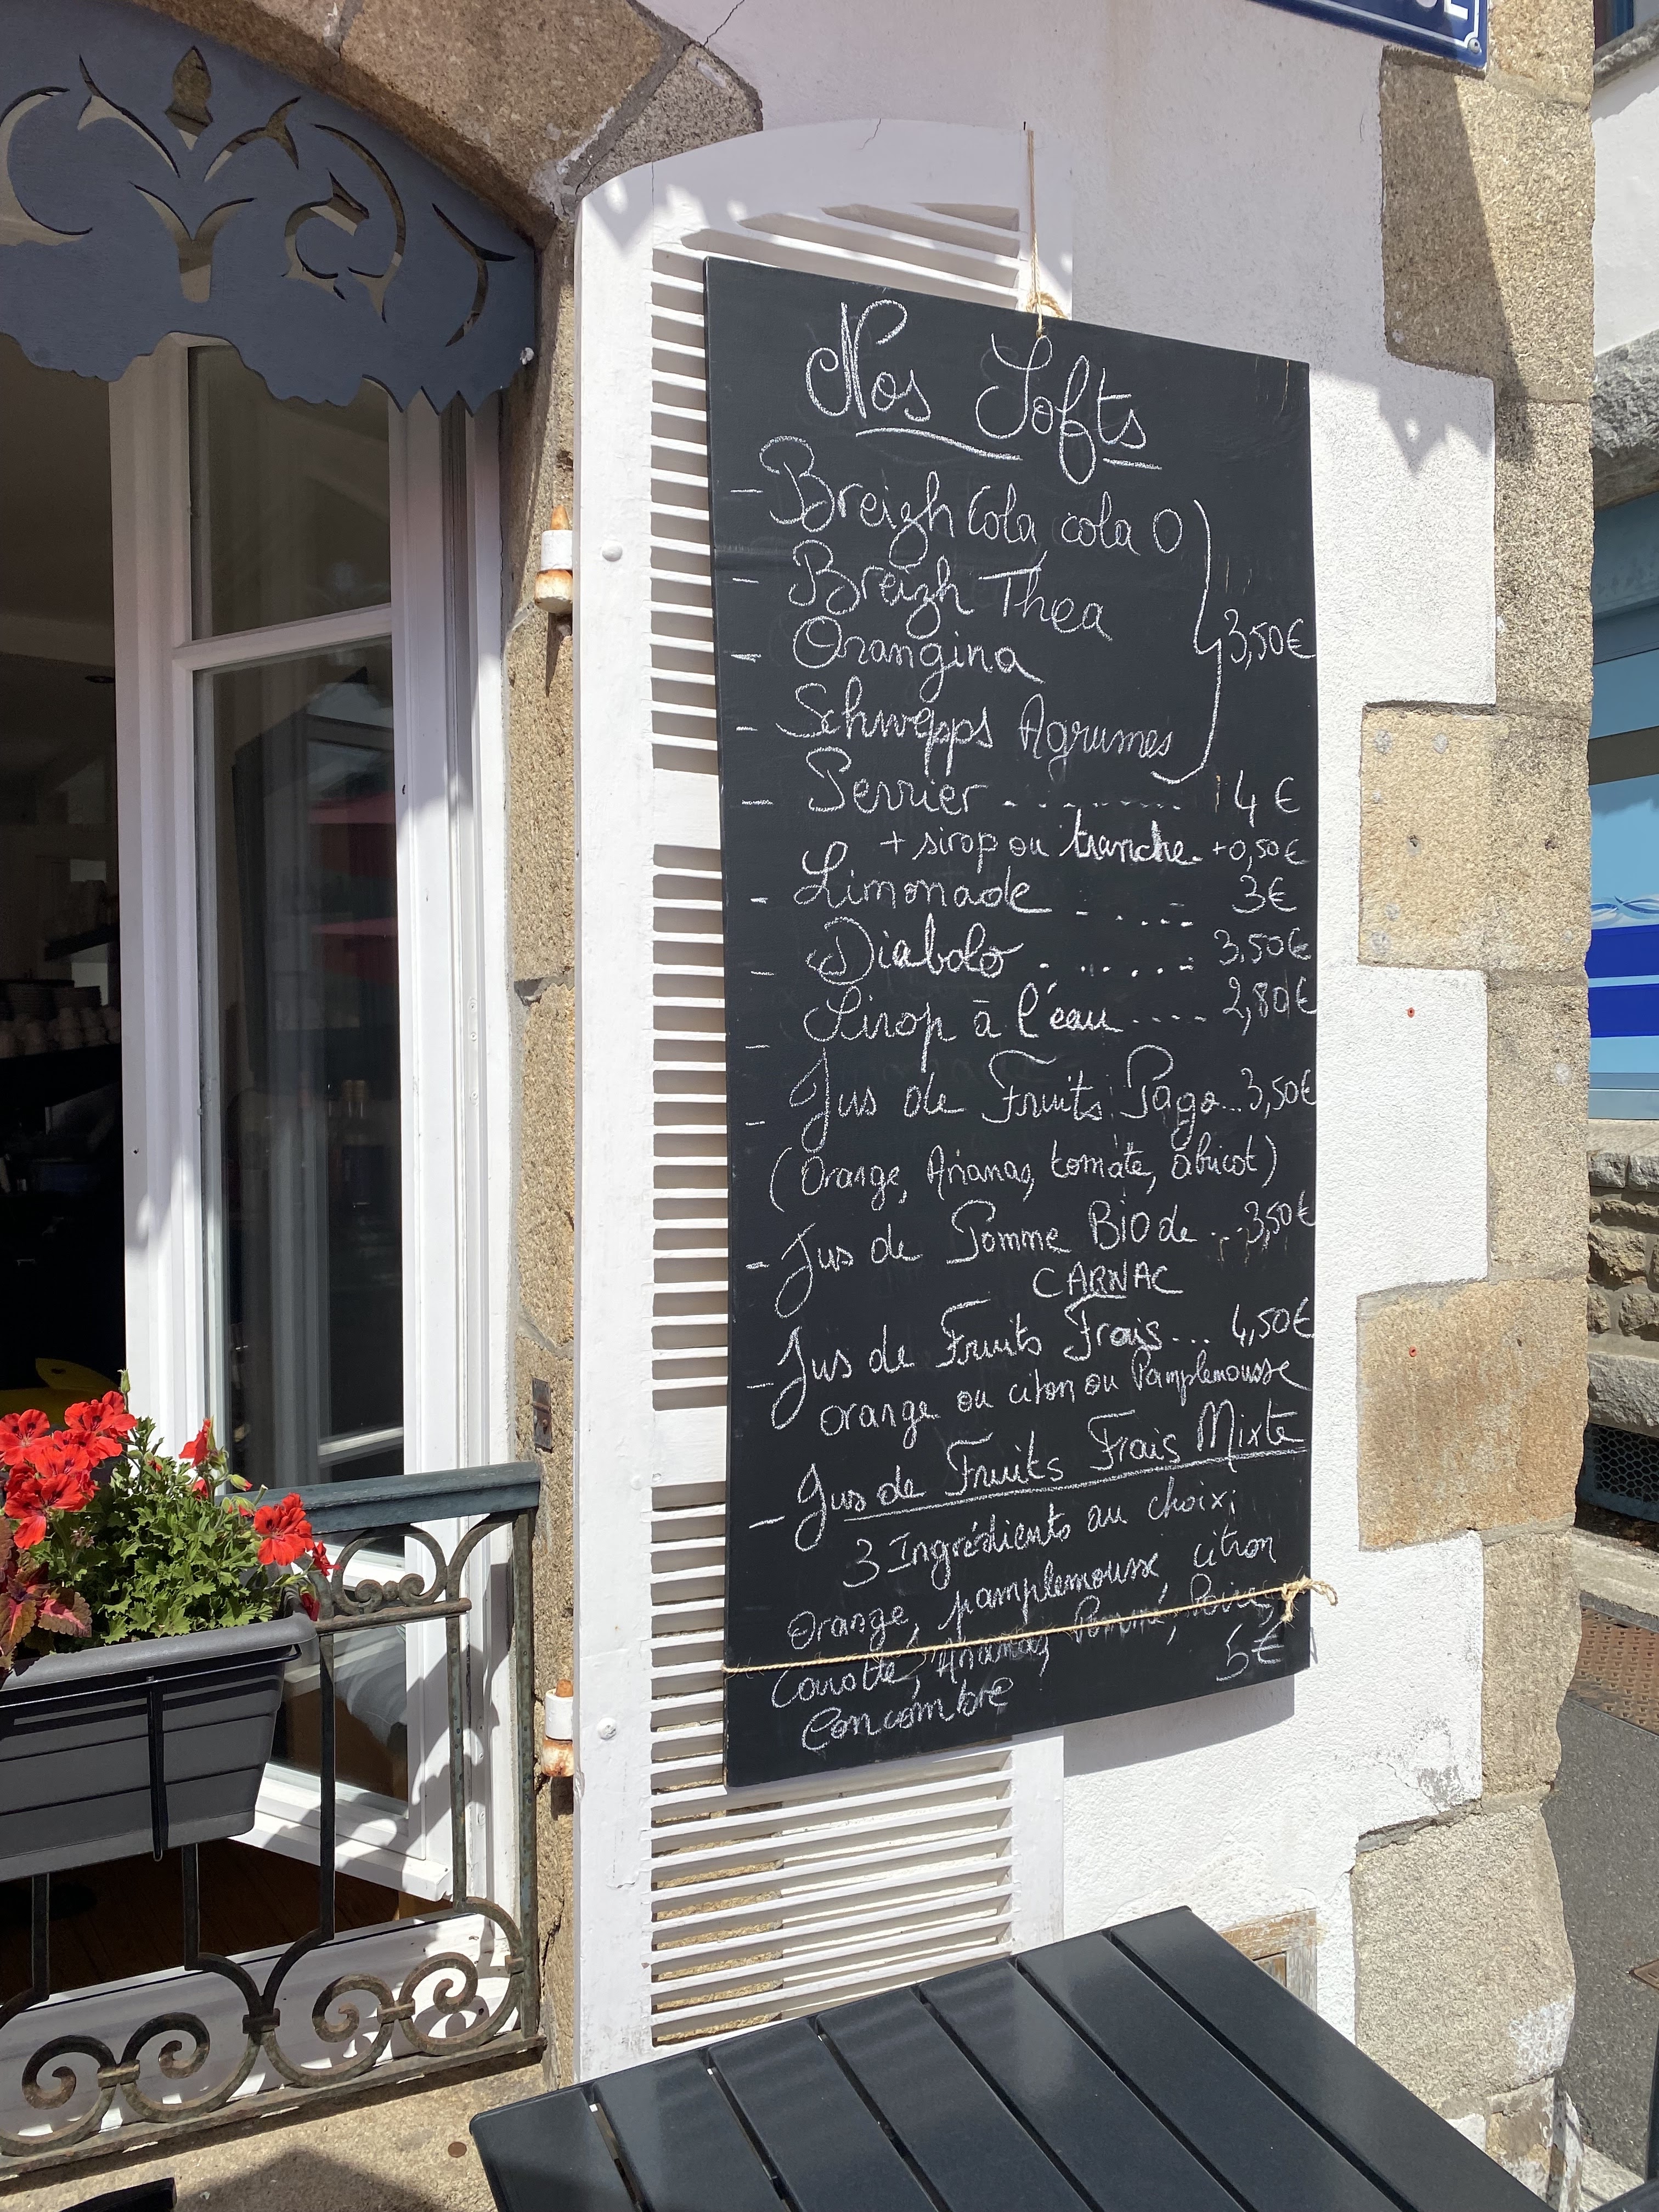 Nos Softs
- Breizh Cola, cola 0
- Breizh Thea
- Orangina
3,50€
- Schwepps Agrumes
- Perrier - - - - - - - - - 4€
+ sirop ou tranche. +0,50€
- Limonade - - . . . - 3€
- Diabolo . . . . . . - 3,50€
- Sirop à l'eau - - - - 2,80€
- Jus de Fruits Pago...3,50€
(Orange, Ananas, tomate, abricot)
- Jus de Pomme BIO de ... 3,50€
CARNAC
- Jus de Fruits Frais ... 4,50€
orange ou citron ou Pamplemousse
- Jus de Fruits Frais Mixte
3 Ingrédients au choix;
Orange, pamplemousse citron
Carotte, Ananas, Pomme, Poire,
Concombre 5€